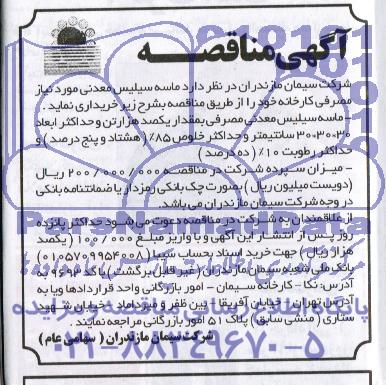 آگهی مناقصه
شرکت سیمان مازندران در نظر دارد ماسه سیلیس معدنی مورد نیاز
مصرفی کارخانه خود را از طریق مناقصه بشرح زیر خریداری نماید.
- ماسه سیلیس معدنی مصرفی بمقدار یکصد هزار تن و حداکثر ابعاد
۳۰*۳۰*۳۰ سانتیمتر و حداکثر خلوص ۸۵٪ (هشتاد و پنج درصد) و
حداکثر رطوبت ۱۰٪ (ده درصد)
- میزان سپرده شرکت در مناقصه ۲۰۰/۰۰۰/۰۰۰ ریال
(دویست میلیون ریال) بصورت چک بانکی رمزدار یا ضمانتنامه بانکی
در وجه شرکت سیمان مازندران می باشد.
از علاقمندان به شرکت در مناقصه دعوت می شود حداکثر پانزده
روز پس از انتشار این آگهی و با واریز مبلغ ۱۰۰/۰۰۰ (یکصد
هزار ریال) جهت خرید اسناد بحساب سیبا (۰۱۰۵۷۰۹۹۵۴۰۰۸)
بانک ملی شعبه سیمان مازندران (غیر قابل برگشت) با کد ۹۶۹۳ به
آدرس: نکا - کارخانه سیمان - امور بازرگانی واحد قراردادها و یا به
آدرس تهران - خیابان آفریقا - بین ظفر و میرداماد - خیابان شهید
ستاری (منشی سابق) پلاک ۵۱ امور بازرگانی مراجعه نمایند.
شرکت سیمان مازندران (سهامی عام)
ParsNamadData
پایگاه اطلاع رسانی مناقصه و مزایده
۰۲۱-۸۸۳۴۹۶۷۰-۵